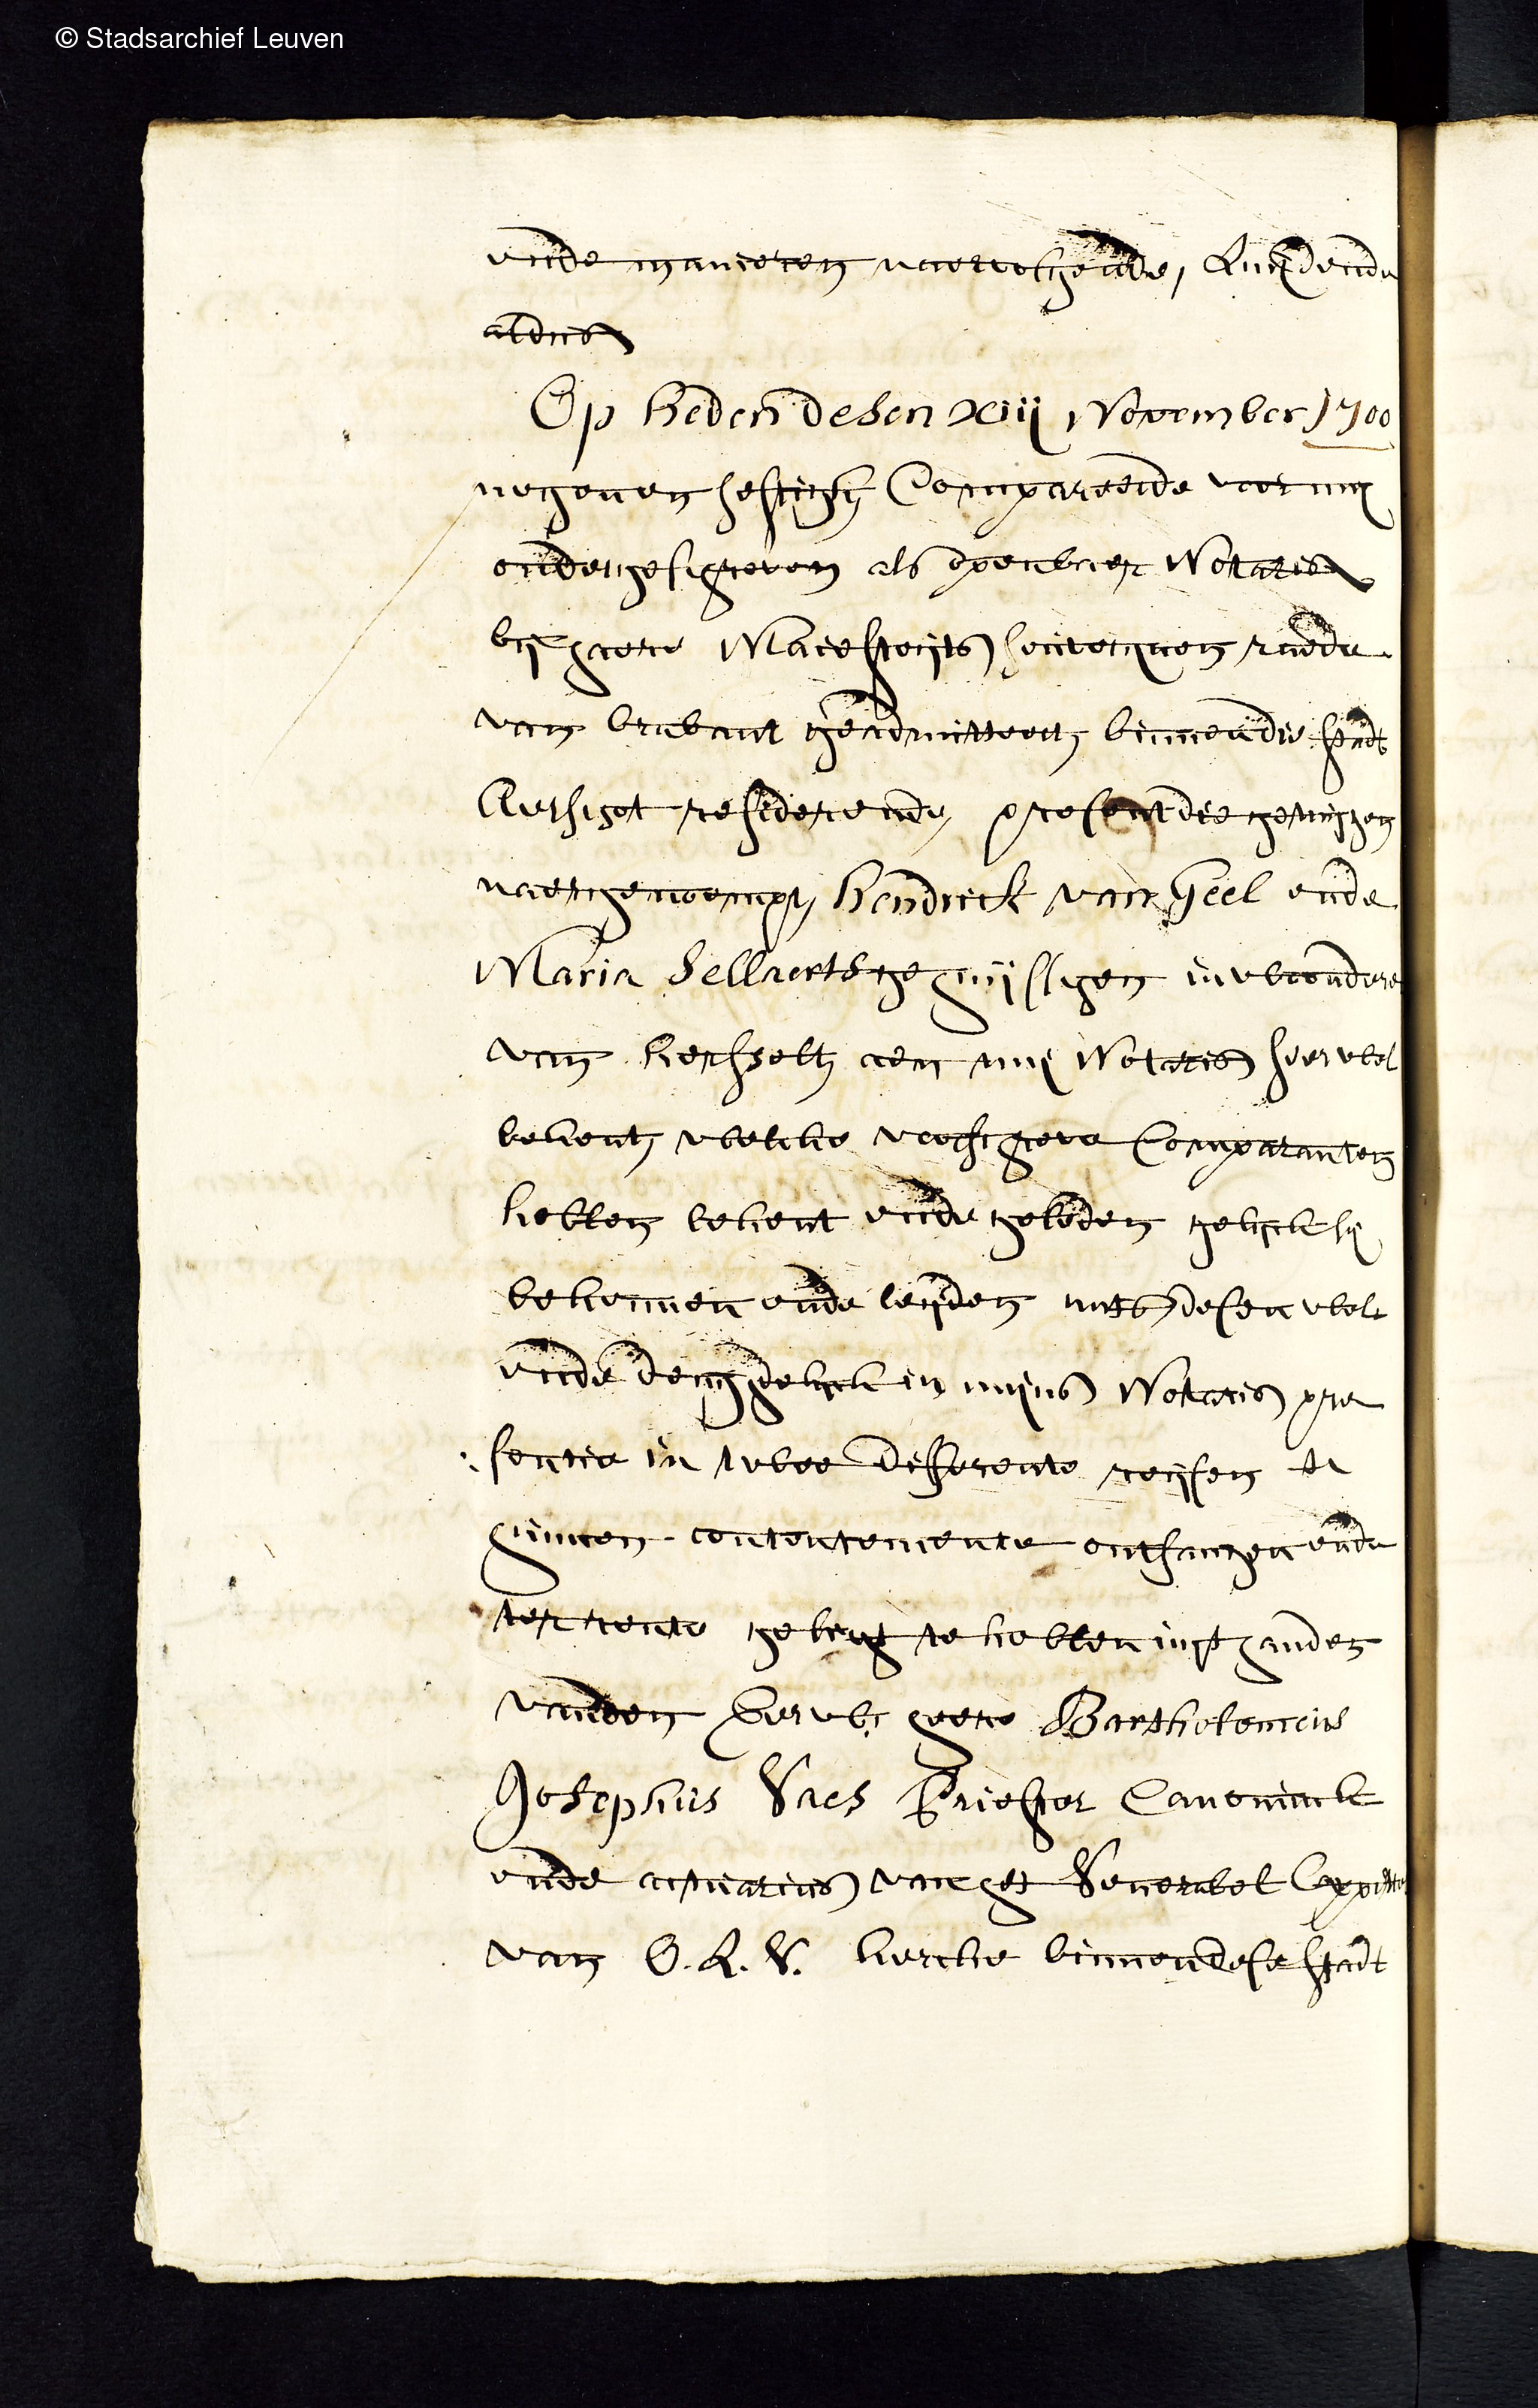 © Stadsarchief Leuven
ende manieren naervolghende, Luijdende
aldus
Op heden desen xiij November 1700
negenen sestigh Compareerde voor mij
ondergeschreven als openbaer Notaris
bij haere Maiesteijts souvereynen raede
van brabant geadmitteert binnen die stadt
Aerschot residerende, present die getuijgen
naergenoempt, Hendrick van Geel ende
Maria Sellaerts gehuijsschen inwoondere
van herselt aen mij Notaris seer wel
bekent, welcke voorschreve Comparanten
hebben bekent ende geleden gelijck sij
bekennen ende leijden mits desen wel
ende deughdelijck in mijns Notaris pre
sentie in twee differente reijsen te
hunnen contentemente ontfangen ende
ter rente gelicht te hebben uijt handen
vanden Eerw. heere Bartholomeus
Josephus Vaes Priester Canoninck
ende actuarius van het Venerabel Cappittel
van O. L. V. kercke binnen dese stadt